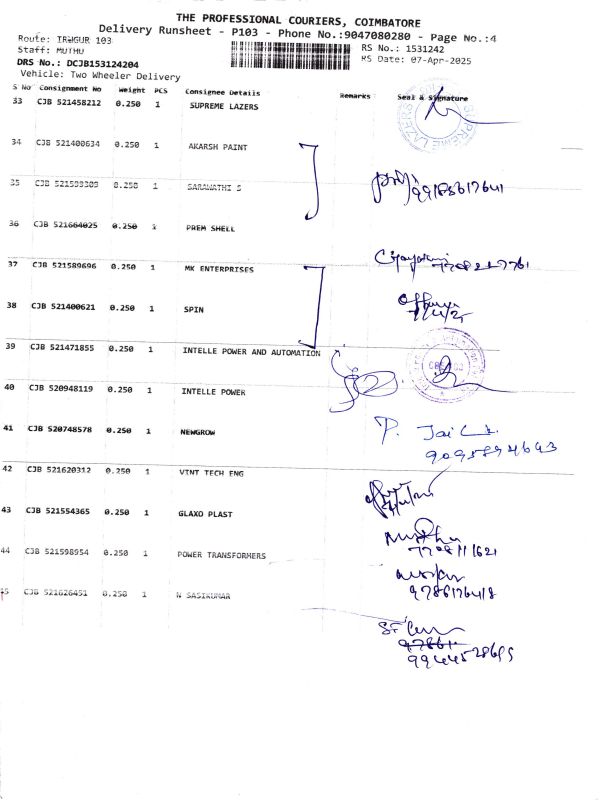 THE PROFESSIONAL COURIERS, COIMBATORE
Delivery Runsheet - P103 - Phone No.:9047080280 - Page No.:4
Route: IRUGUR 103 RS No.: 1531242
Staff: MUTHU RS Date: 07-Apr-2025
DRS No.: DCJB153124204
Vehicle: Two Wheeler Delivery
S No Consignment No Weight PCS Consignee Details Remarks Seal & Signature
33 CJB 521458212 0.250 1 SUPREME LAZERS
SUPREME LAZERS
34 CJB 521400634 0.250 1 AKARSH PAINT
35 CJB 521599309 0.250 1 SARAWATHI S
36 CJB 521664025 0.250 1 PREM SHELL
37 CJB 521589696 0.250 1 MK ENTERPRISES
38 CJB 521400621 0.250 1 SPIN
39 CJB 521471855 0.250 1 INTELLE POWER AND AUTOMATION
40 CJB 520948119 0.250 1 INTELLE POWER
41 CJB 520748578 0.250 1 NEWGROW
P. Jai
9095894643
42 CJB 521620312 0.250 1 VINT TECH ENG
43 CJB 521554365 0.250 1 GLAXO PLAST
7708111621
44 CJB 521598954 0.250 1 POWER TRANSFORMERS
9786176418
45 CJB 521626451 0.250 1 N SASIKUMAR
97861
9944528695